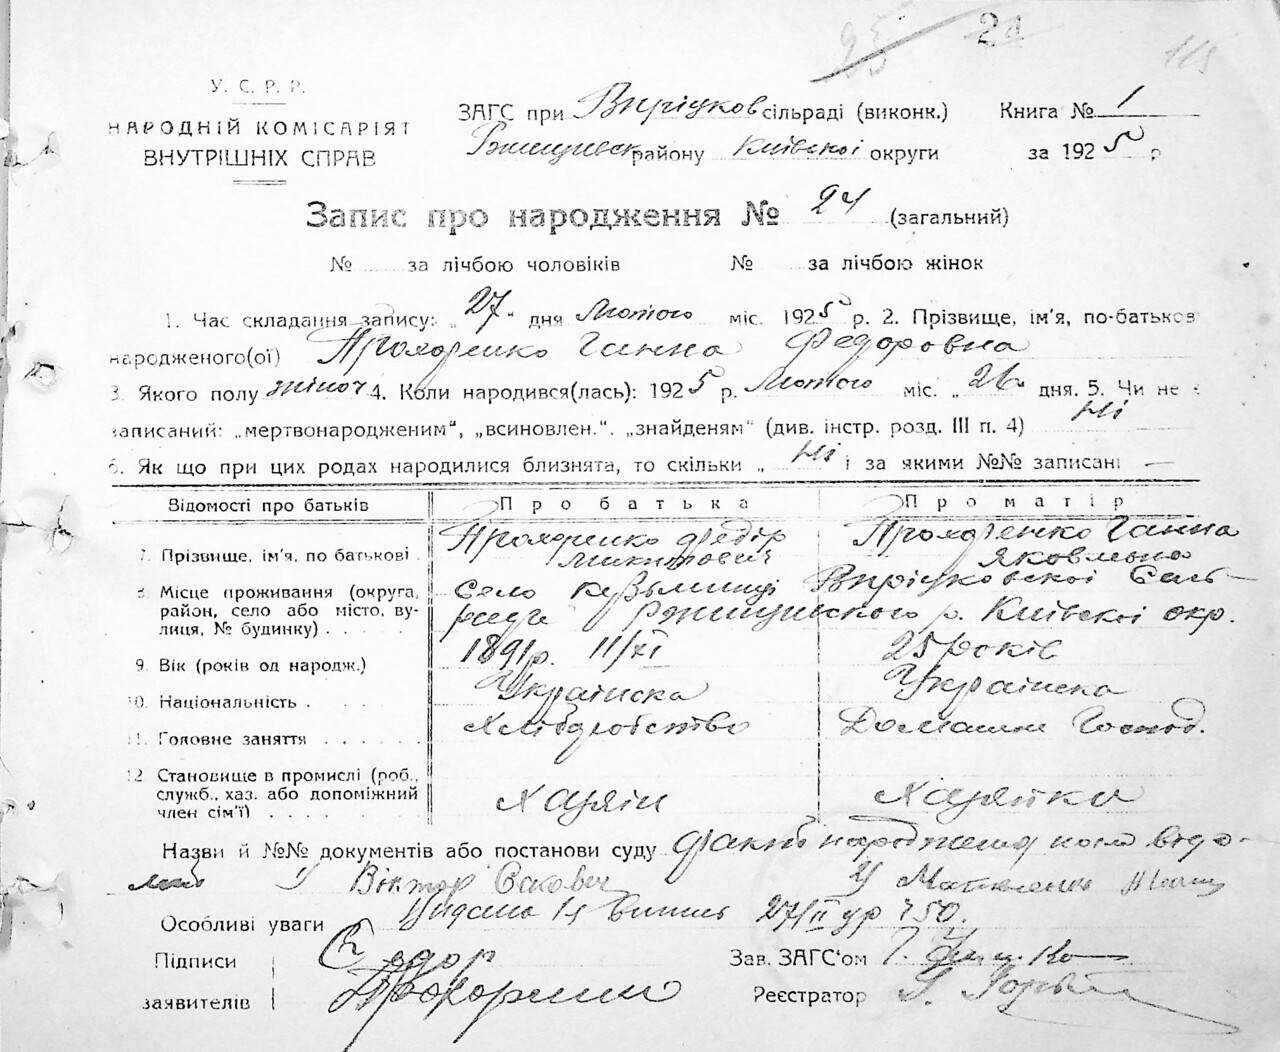 25 24 115
У. С. Р. Р.
НАРОДНІЙ КОМІСАРІЯТ
ВНУТРІШНІХ СПРАВ
ЗАГС при Випріцков сільраді (виконк.) Книга № 1
Ржищивск району Київскоі округи за 1925 р
Запис про народження № 24 (загальний)
№ за лічбою чоловіків № за лічбою жінок
1. Час складання запису: „27“ дня Лютого міс. 1925 р. 2. Прізвище, ім'я, по-батьков
народженого(ої) Прохоренко Ганна Федоровна
3. Якого полу жіноч 4. Коли народився(лась): 1925 р. Лютого міс. „26“ дня. 5. Чи не є
записаний: „мертвонародженим“, „всиновлен.“, „знайденям“ (див. інстр. розд. III п. 4) Ні
6. Як що при цих родах народилися близнята, то скільки „ Ні і за якими №№ записані —
Відомості про батьків Про батька Про матір
7. Прізвище, ім'я, по батькові . Прохоренко Федір Микитович Прохоренко Ганна Яковльвна
8. Місце проживання (округа, район, село або місто, вулиця, № будинку) . . . . Село Кузьминці Випріцковскоі Сельради Ржищивского р. Київскоі окр.
9. Вік (років од народж.) 1891 р. 11/XI 25 років
10. Національність . Украінска Украінска
11. Головне заняття . . . . . . Хліборобство Домашнє Господ.
12 Становище в промислі (роб., служб., хаз. або допоміжний член сім'ї) . . . . . Хазяін Хазяйка
Назви й №№ документів або постанови суду Факт народження
Віктор
Особливі уваги Видана 27/II 750.
Підписи Федор Зав. ЗАГС'ом
заявителів Прохоренко Реєстратор